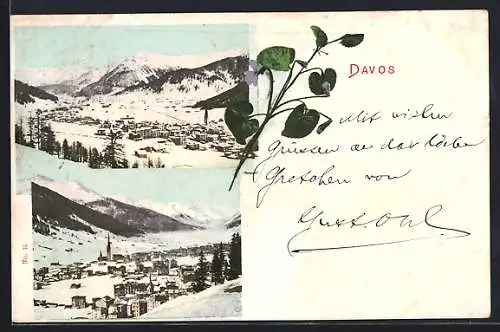 DAVOS
Mit vielen
Grüssen an das liebe
Gretchen von
No. 11